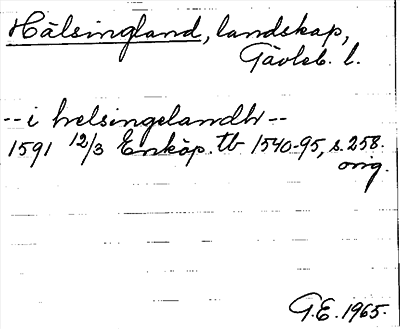 Hälsingland, landskap,
Gävleb. l.
-- i helsingelandh --
1591 12/3 Enköp. tb 1540-95, s. 258.
orig.
G.E. 1965.